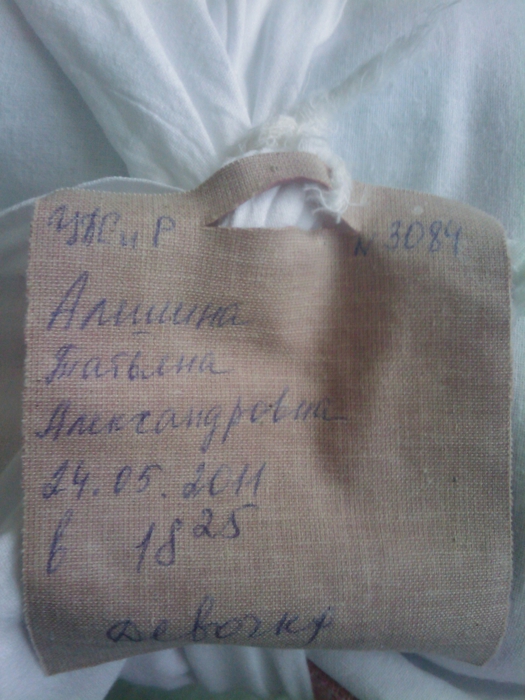 УЖС и Р № 3084
Алешина
Татьяна
Александровна
24.05.2011
в 18 25
девочку